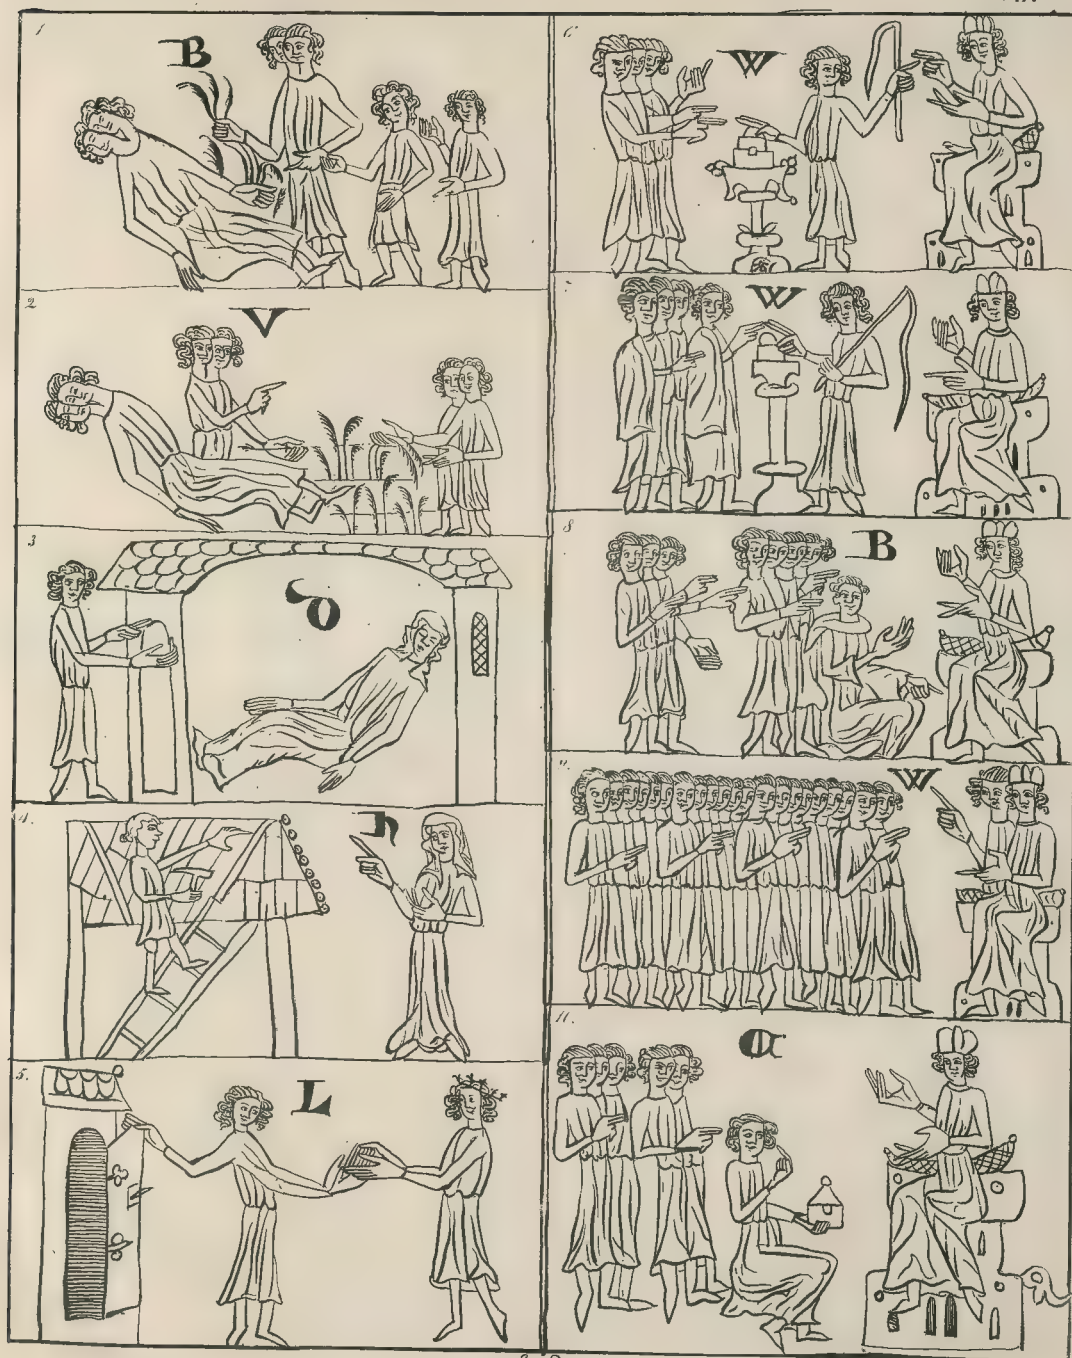 1
B
2
V
3
D
4.
h
5.
L
6
W
7
W
8
B
9.
W
11.